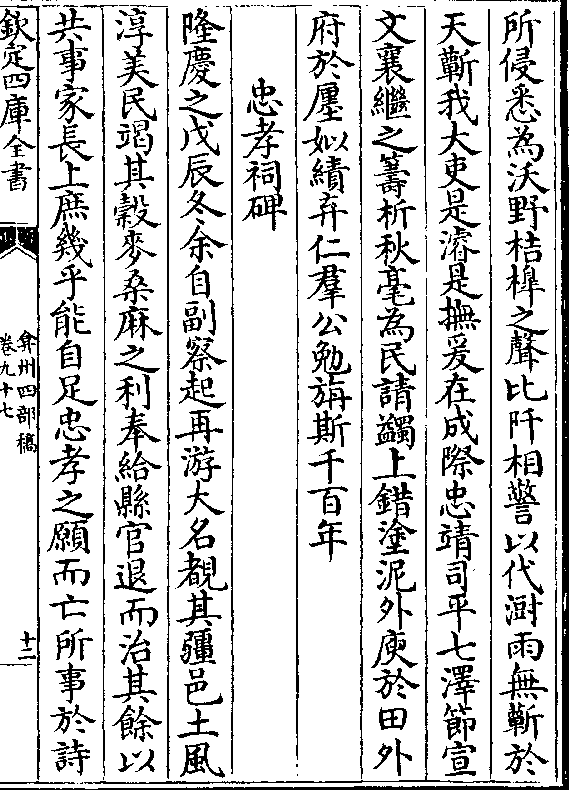 所侵悉為沃野桔橰之聲比阡相警以代澍雨無蘄於
天蘄我大吏是濬是撫爰在成際忠靖司平七澤節宣
文襄繼之籌析秋毫為民請蠲上錯塗泥外庾於田外
府於廛姒績弃仁羣公勉旃斯千百年
忠孝祠碑
隆慶之戊辰冬余自副察起再游大名覩其疆邑土風
淳美民竭其穀麥桑麻之利奉給縣官退而治其餘以
共事家長上庶幾乎能自足忠孝之願而亡所事於詩
欽定四庫全書
弇州四部稿
卷九十七
十二